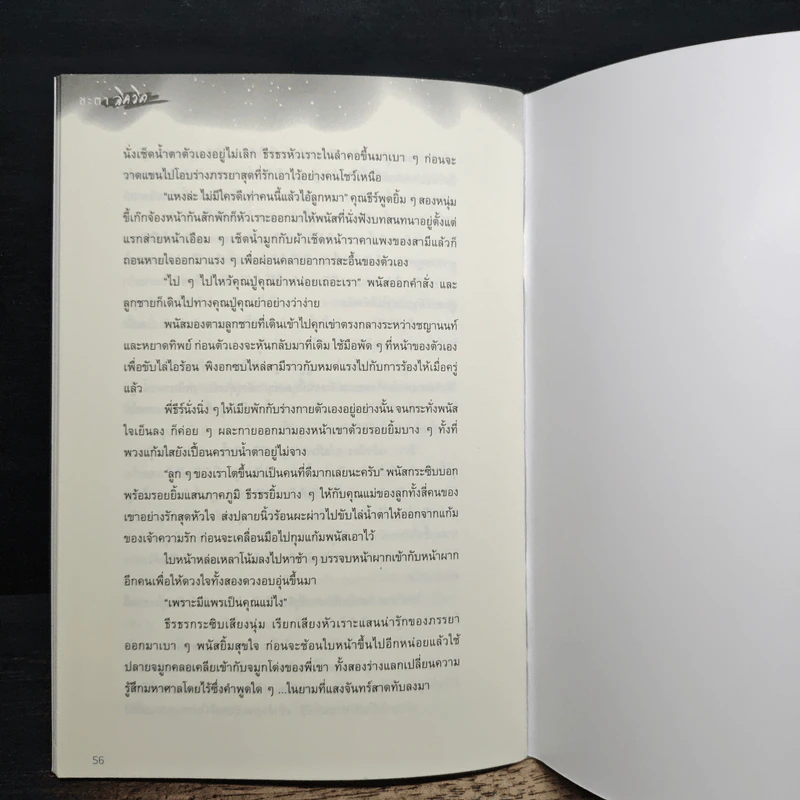 ชะตา ลิขิต
นั่งเช็ดน้ำตาตัวเองอยู่ไม่เลิก ธีรธรหัวเราะในลำคอขึ้นมาเบา ๆ ก่อนจะ
วาดแขนไปโอบร่างภรรยาสุดที่รักเอาไว้อย่างคนโชว์เหนือ
“แหงล่ะ ไม่มีใครดีเท่าคนนี้แล้วไอ้ลูกหมา” คุณธีร์พูดยิ้ม ๆ สองหนุ่ม
ขี้เก๊กจ้องหน้ากันสักพักก็หัวเราะออกมาให้พนัสที่นั่งฟังบทสนทนาอยู่ตั้งแต่
แรกส่ายหน้าเอือม ๆ เช็ดน้ำมูกกับผ้าเช็ดหน้าราคาแพงของสามีแล้วก็
ถอนหายใจออกมาแรง ๆ เพื่อผ่อนคลายอาการสะอื้นของตัวเอง
“ไป ๆ ไปไหว้คุณปู่คุณย่าหน่อยเถอะเรา” พนัสออกคำสั่ง และ
ลูกชายก็เดินไปทางคุณปู่คุณย่าอย่างว่าง่าย
พนัสมองตามลูกชายที่เดินเข้าไปคุกเข่าตรงกลางระหว่างชญานนท์
และหยาดทิพย์ ก่อนตัวเองจะหันกลับมาที่เดิม ใช้มือพัด ๆ ที่หน้าของตัวเอง
เพื่อขับไล่ไอร้อน พิงอกซบไหล่สามีราวกับหมดแรงไปกับการร้องไห้เมื่อครู่
แล้ว
พี่ธีร์นั่งนิ่ง ๆ ให้เมียพักกับร่างกายตัวเองอยู่อย่างนั้น จนกระทั่งพนัส
ใจเย็นลง ก็ค่อย ๆ ผละกายออกมามองหน้าเขาด้วยรอยยิ้มบาง ๆ ทั้งที่
พวงแก้มใสยังเปื้อนคราบน้ำตาอยู่ไม่จาง
“ลูก ๆ ของเราโตขึ้นมาเป็นคนที่ดีมากเลยนะครับ” พนัสกระซิบบอก
พร้อมรอยยิ้มแสนภาคภูมิ ธีรธรยิ้มบาง ๆ ให้กับคุณแม่ของลูกทั้งสี่คนของ
เขาอย่างรักสุดหัวใจ ส่งปลายนิ้วร้อนผะผ่าวไปขับไล่น้ำตาให้ออกจากแก้ม
ของเจ้าความรัก ก่อนจะเคลื่อนมือไปกุมแก้มพนัสเอาไว้
ใบหน้าหล่อเหลาโน้มลงไปหาช้า ๆ บรรจบหน้าผากเข้ากับหน้าผาก
อีกคนเพื่อให้ดวงใจทั้งสองดวงอบอุ่นขึ้นมา
“เพราะมีแพรเป็นคุณแม่ไง”
ธีรธรกระซิบเสียงนุ่ม เรียกเสียงหัวเราะแสนน่ารักของภรรยา
ออกมาเบา ๆ พนัสยิ้มสุขใจ ก่อนจะช้อนใบหน้าขึ้นไปอีกหน่อยแล้วใช้
ปลายจมูกคลอเคลียเข้ากับจมูกโด่งของพี่เขา ทั้งสองร่างแลกเปลี่ยนความ
รู้สึกมหาศาลโดยไร้ซึ่งคำพูดใด ๆ ...ในยามที่แสงจันทร์สาดทับลงมา
56